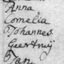 Anna
Cornelia
Johannes
Geertruy
Jan